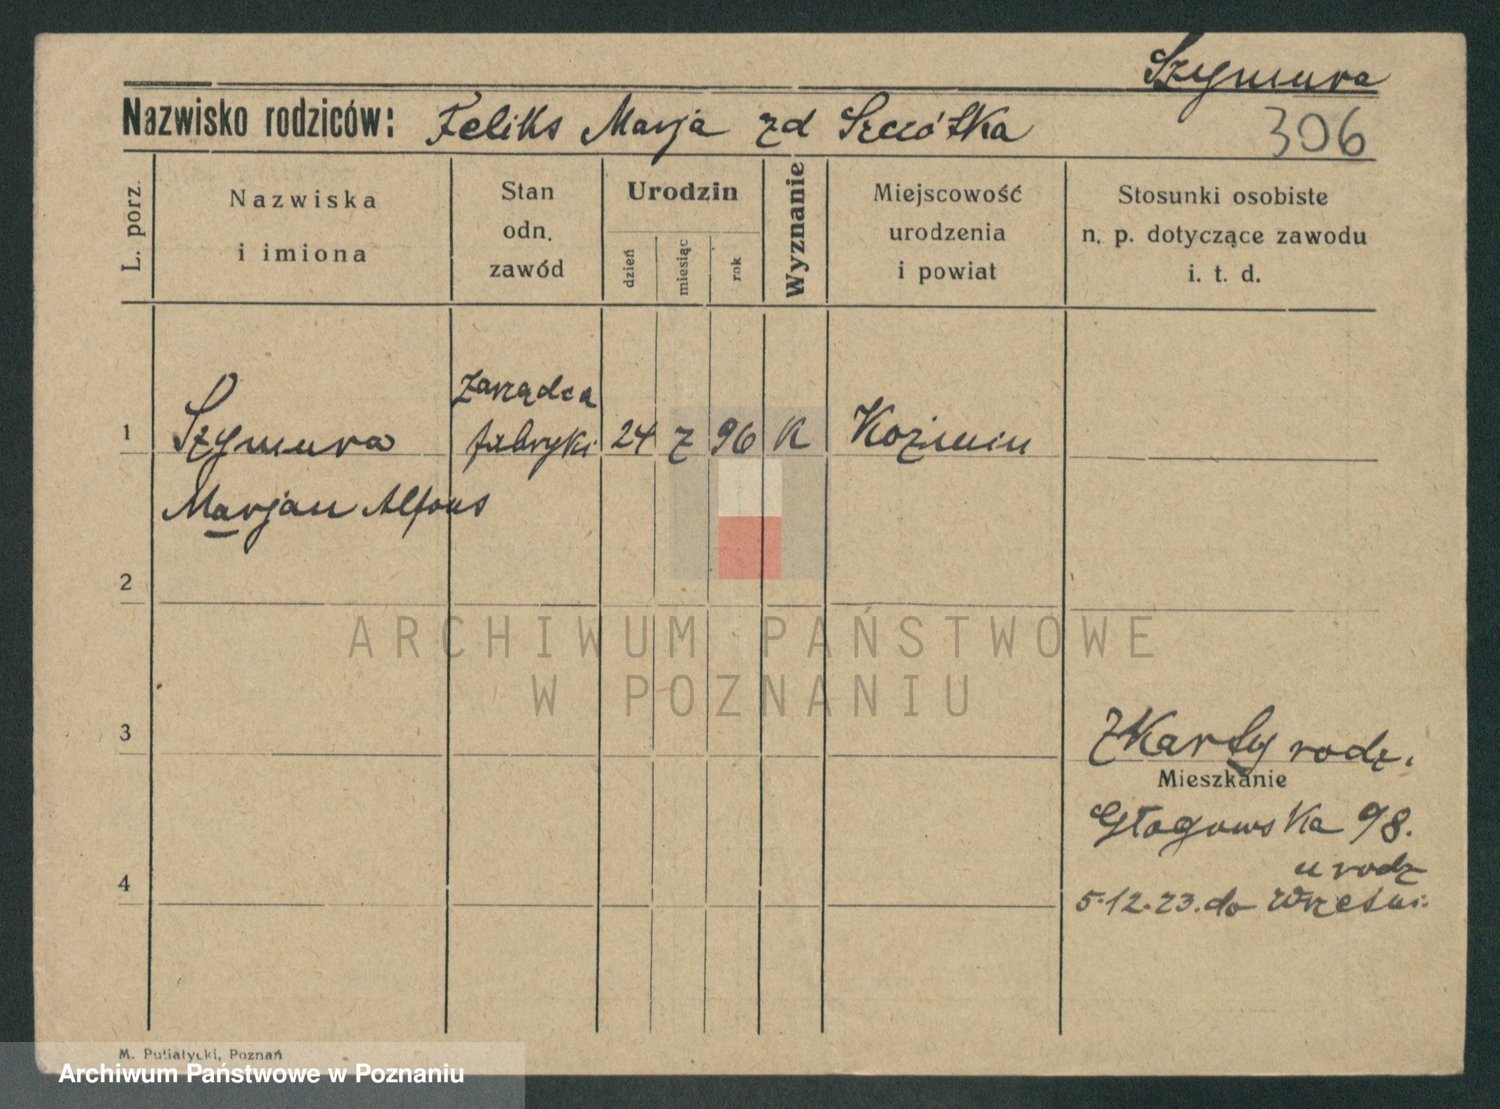 Szymura
Nazwisko rodziców: Feliks Marja zd Szczótka
306
L. porz.
Nazwiska
i imiona
Stan
odn.
zawód
Urodzin
dzień
miesiąc
rok
Wyznanie
Miejscowość
urodzenia
i powiat
Stosunki osobiste
n. p. dotyczące zawodu
i. t. d.
zarządca
1 Szymura fabryki 24 7 96 K Koźmin
Marjan Alfons
2
ARCHIWUM PAŃSTWOWE
W POZNANIU
3
Z Karty rodz.
Mieszkanie
Głogowska 98.
u rodz
4
5.12.23. do Wrześni.
M. Putiatycki, Poznań
Archiwum Państwowe w Poznaniu